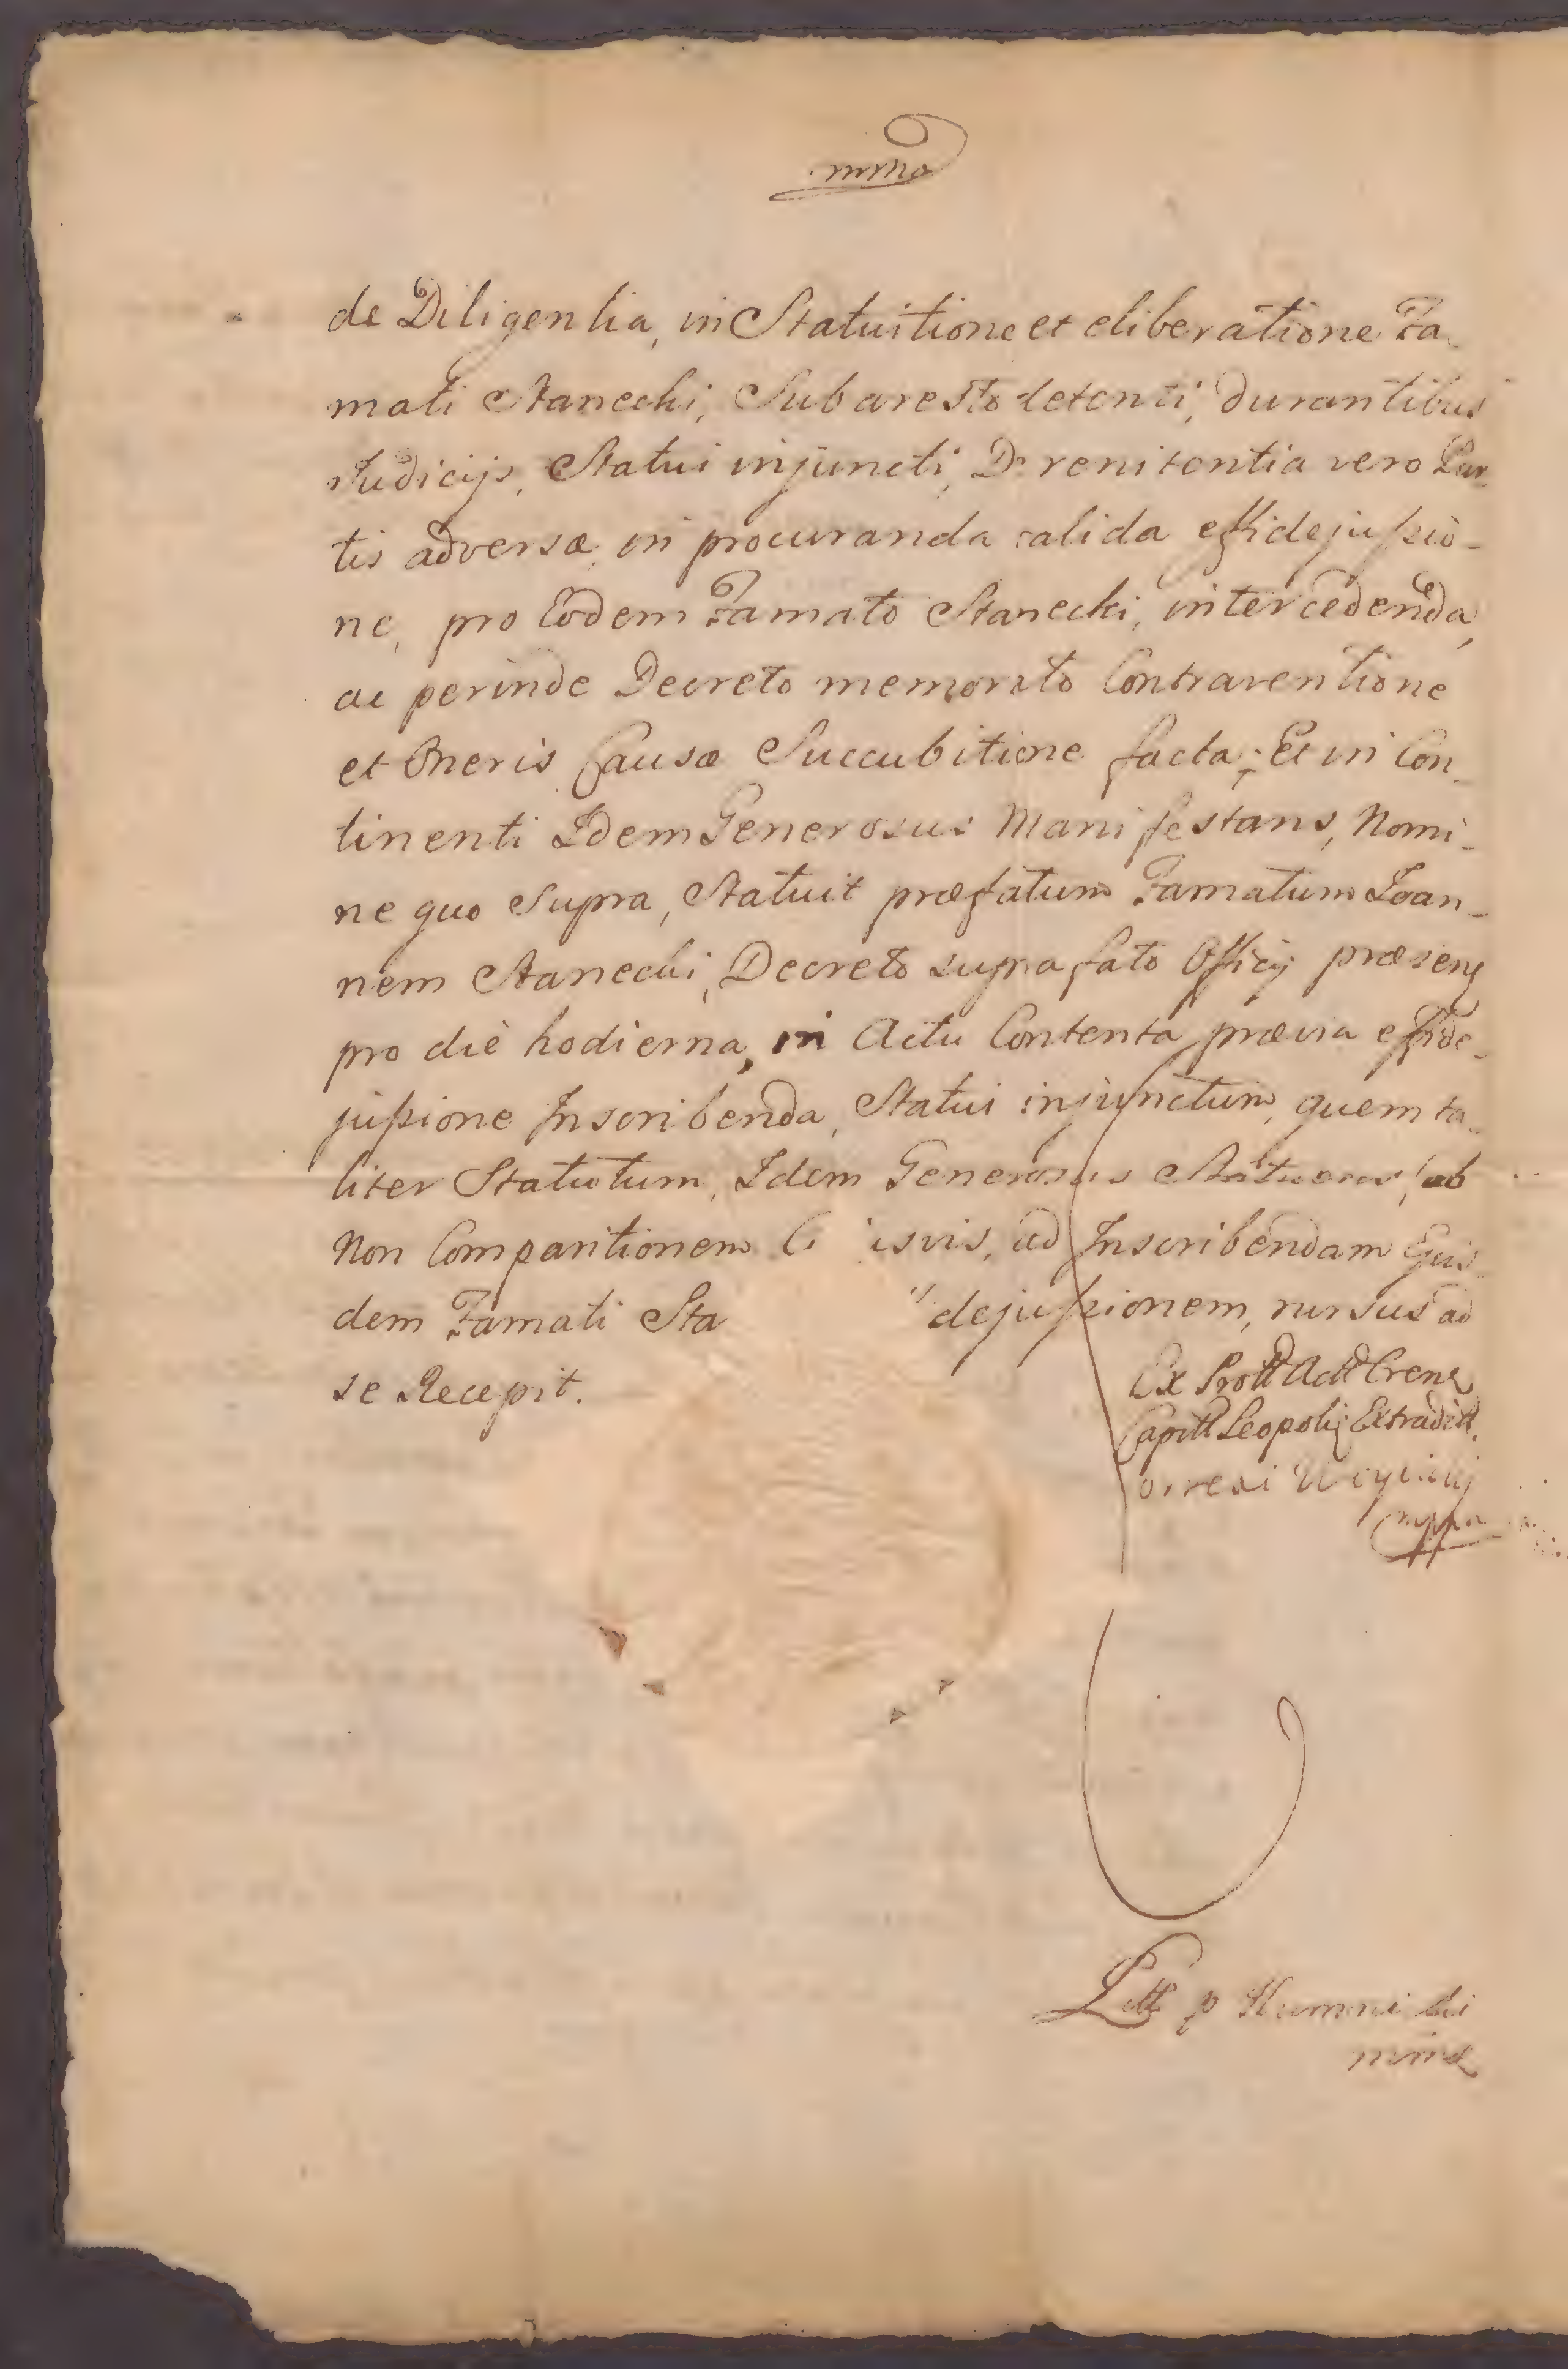 mma
de Diligentia, in Statuitione et eliberatione Fa-
mati Stanecki, Sub aresto detenti, durantibus
Judicijs, Statui injuncti, De renitentia vero Par-
tis adversæ, in procuranda valida effidejussio-
ne, pro Eodem Famato Stanecki, intercedenda,
ac perinde Decreto memorato Contraventione
et Oneris Causæ Succubitione facta; Et in Con-
tinenti Idem Generosus Manifestans, Nomi-
ne quo Supra, Statuit præfatum Famatum Joan-
nem Stanecki, Decreto suprafato Officij præsentis
pro die hodierna, in Actu Contenta, prævia effide-
jussione Inscribenda, Statui injunctum, quem ta-
liter Statutum, Idem Generosus Statuens, ob
Non Comparitionem isvis, ad Inscribendam Ejus-
dem Famati Sta dejussionem, rursus ad
se Recepit.
Ex Prott Actt Crens
Capitt Leopolij Extraditt.
mppa
Lett p
mma